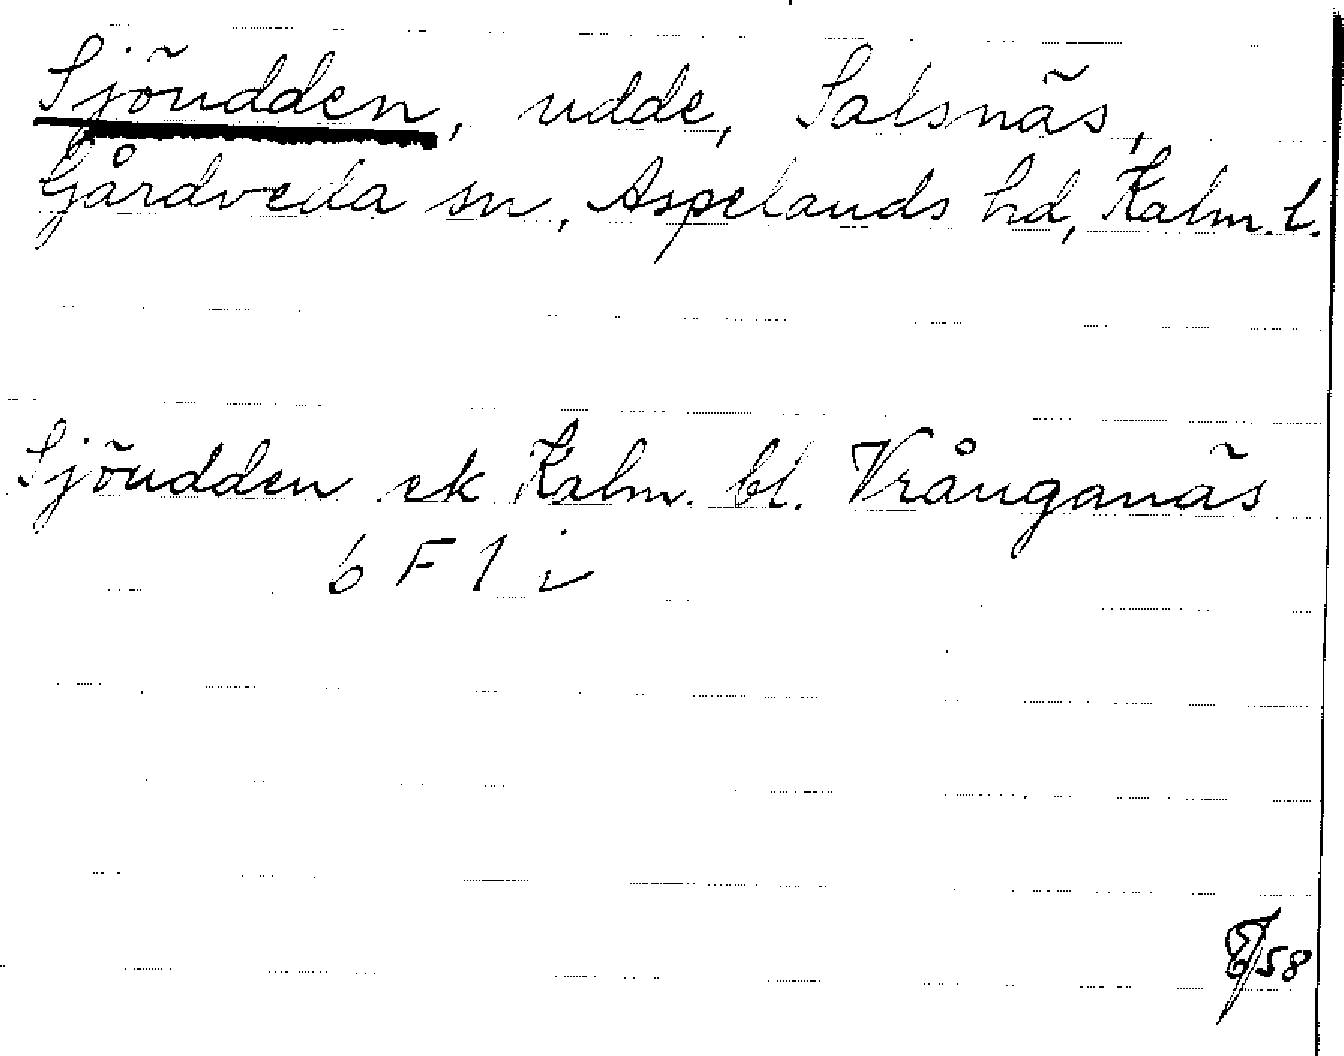 Sjöudden, udde, Salsnäs,
Gårdveda sn, Aspelands hd, Kalm. l.
Sjöudden ek Kalm. bl. Vrånganäs
6 F 1 i
58